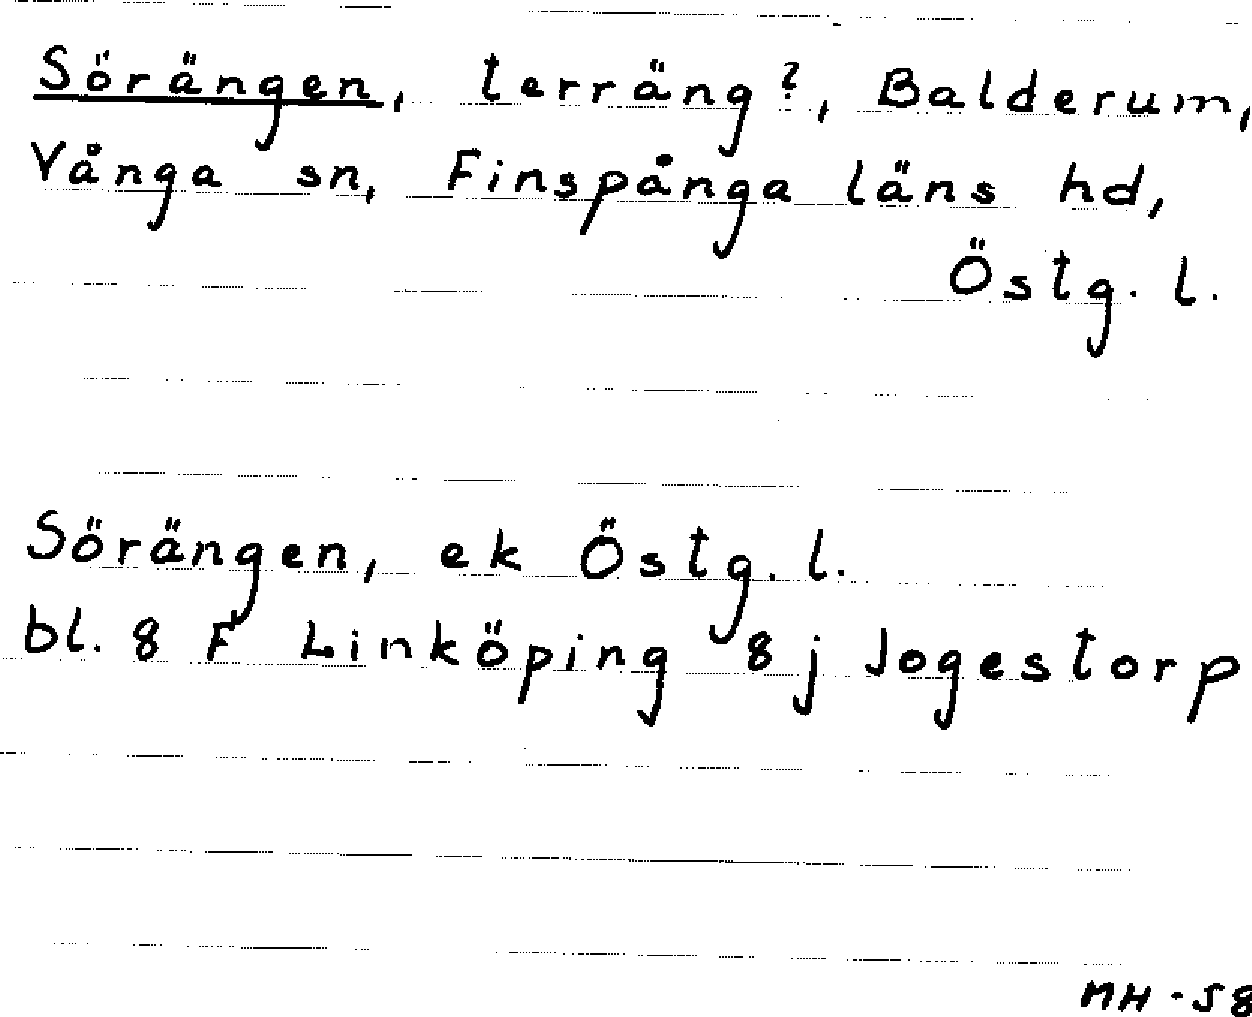 Sörängen, terräng?, Balderum,
Vånga sn, Finspånga läns hd,
Östg. l.
Sörängen, ek Östg. l.
bl. 8 F Linköping 8 j Jogestorp
MH - 58